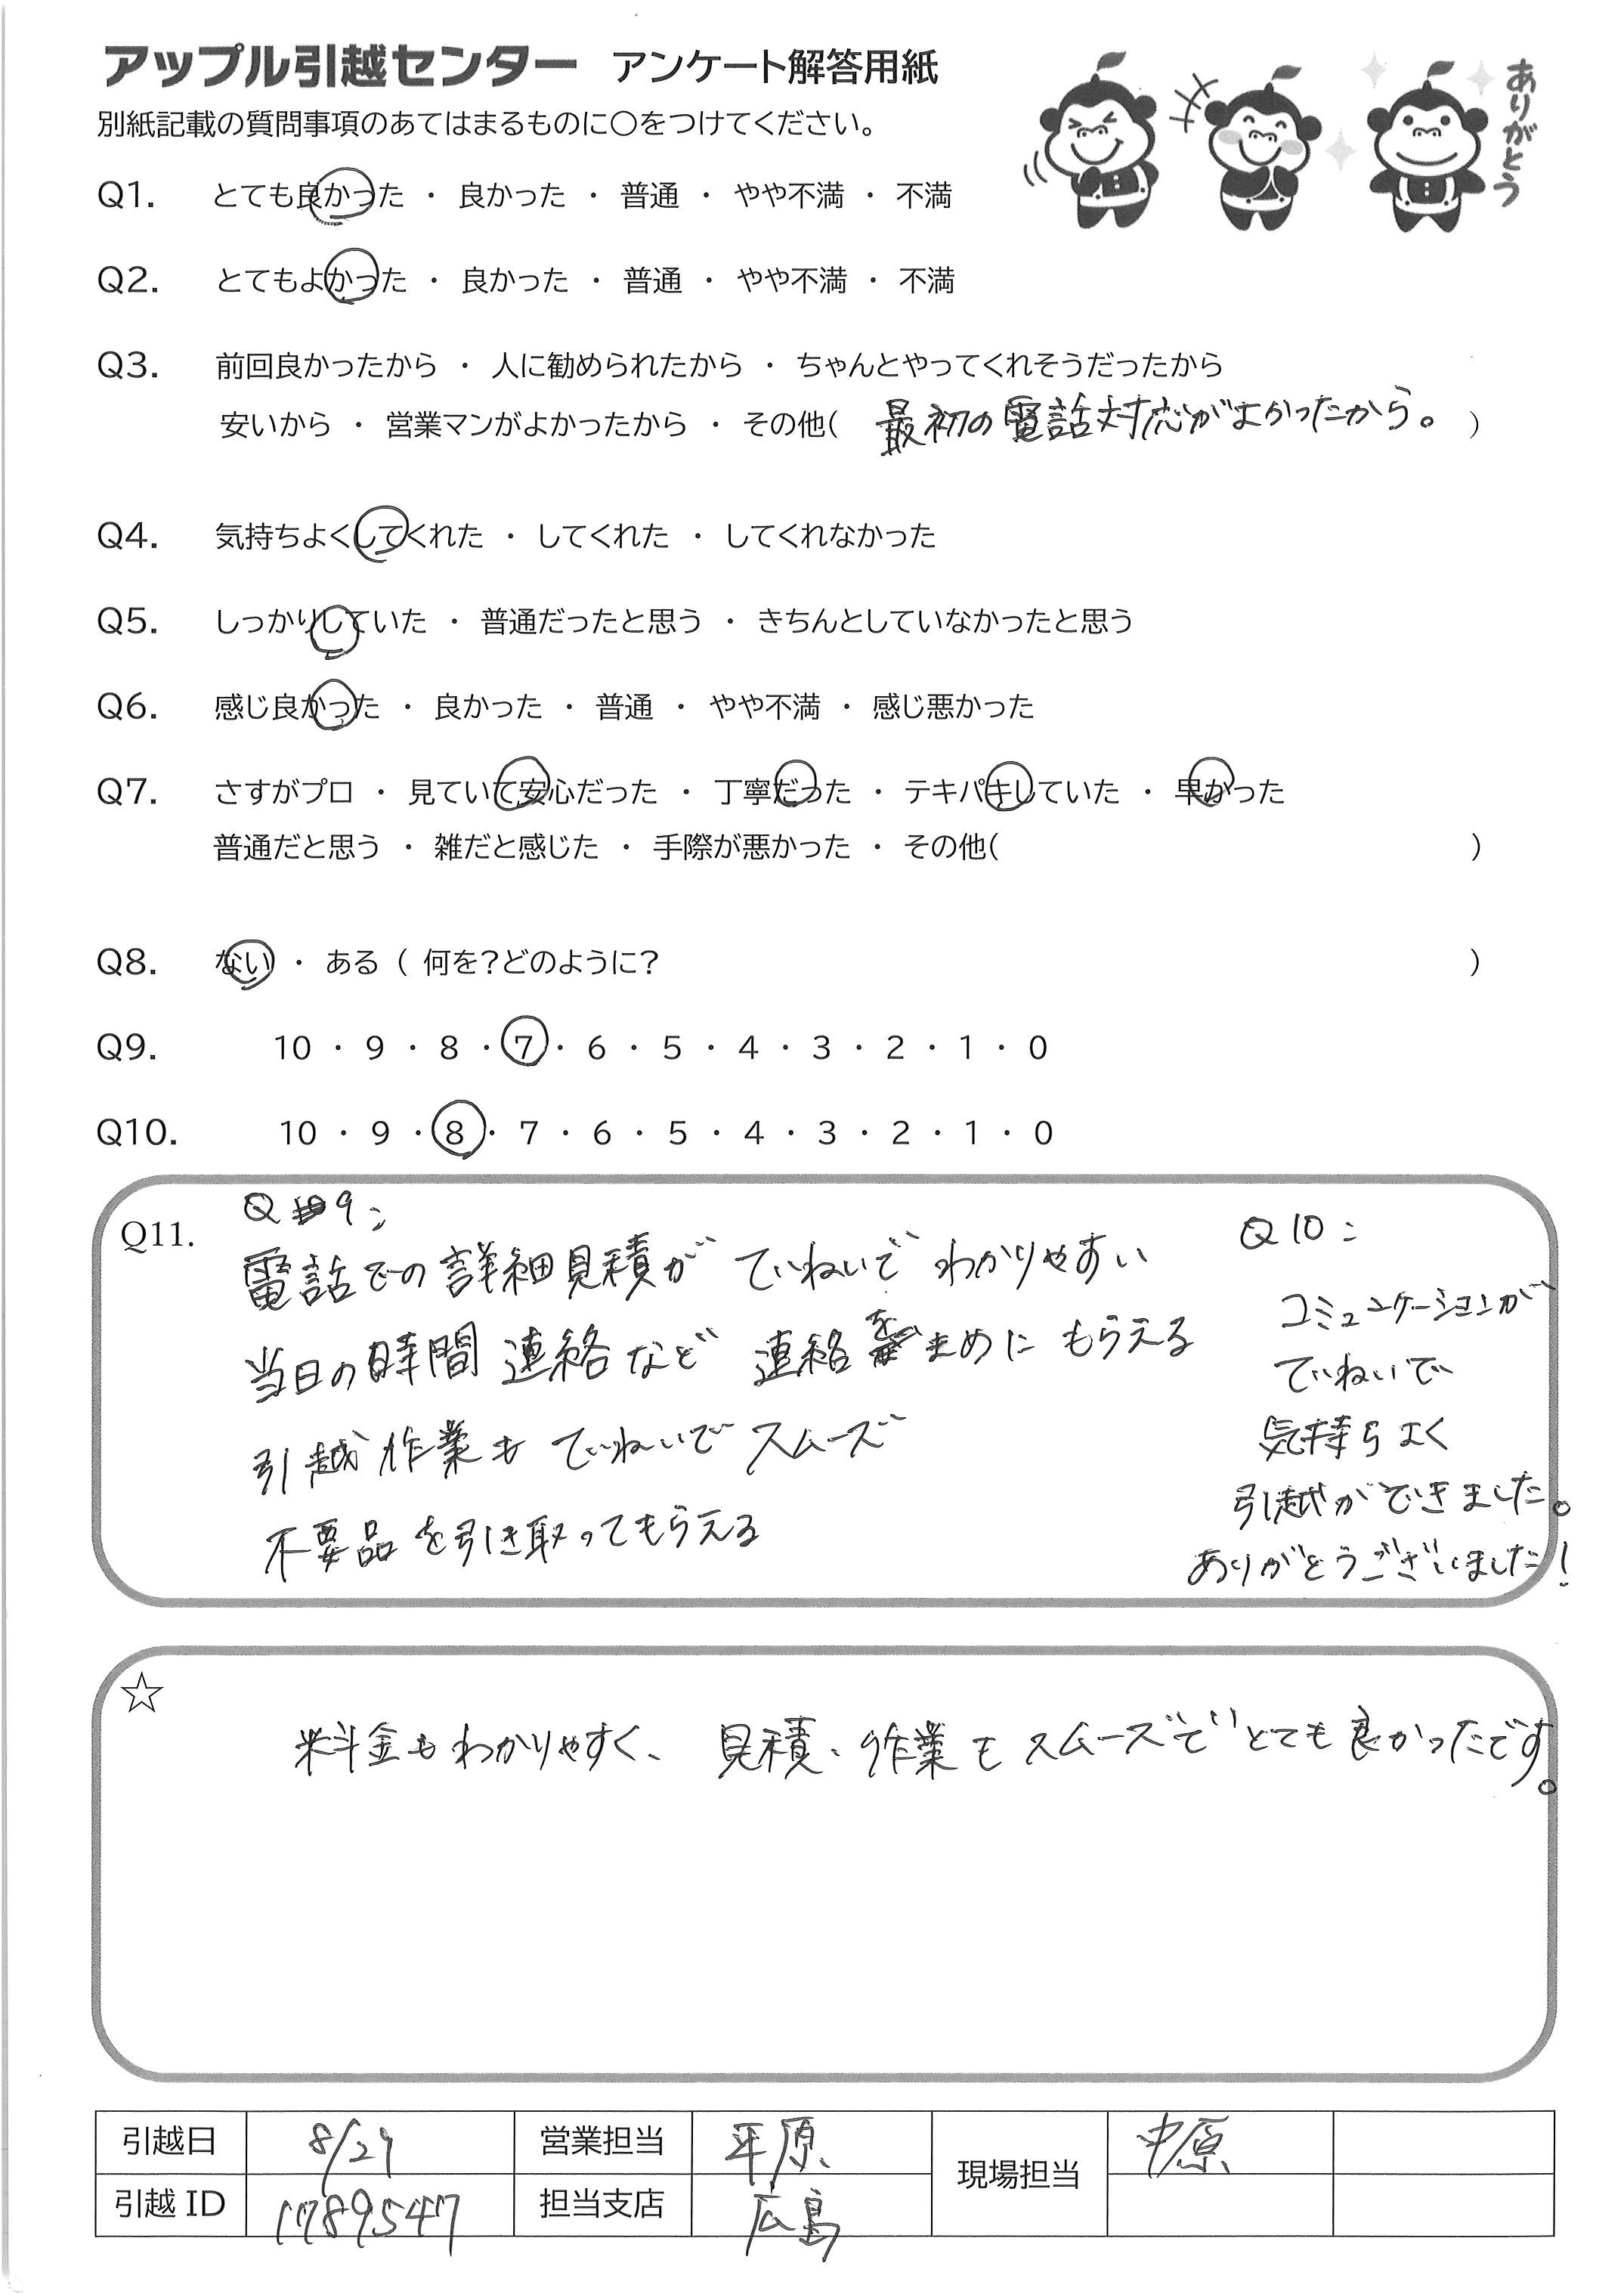 アップル引越センター アンケート解答用紙
ありがとう
別紙記載の質問事項のあてはまるものに○をつけてください。
Q1. とても良かった ・ 良かった ・ 普通 ・ やや不満 ・ 不満
Q2. とてもよかった ・ 良かった ・ 普通 ・ やや不満 ・ 不満
Q3. 前回良かったから ・ 人に勧められたから ・ ちゃんとやってくれそうだったから
安いから ・ 営業マンがよかったから ・ その他( 最初の電話対応がよかったから。 )
Q4. 気持ちよくしてくれた ・ してくれた ・ してくれなかった
Q5. しっかりしていた ・ 普通だったと思う ・ きちんとしていなかったと思う
Q6. 感じ良かった ・ 良かった ・ 普通 ・ やや不満 ・ 感じ悪かった
Q7. さすがプロ ・ 見ていて安心だった ・ 丁寧だった ・ テキパキしていた ・ 早かった
普通だと思う ・ 雑だと感じた ・ 手際が悪かった ・ その他( )
Q8. ない ・ ある ( 何を?どのように? )
Q9. 10 ・ 9 ・ 8 ・ 7 ・ 6 ・ 5 ・ 4 ・ 3 ・ 2 ・ 1 ・ 0
Q10. 10 ・ 9 ・ 8 ・ 7 ・ 6 ・ 5 ・ 4 ・ 3 ・ 2 ・ 1 ・ 0
Q11.
Q9:
電話での詳細見積が ていねいで わかりやすい
当日の時間 連絡など 連絡をまめに もらえる
引越作業も ていねいで スムーズ
不要品を引き取ってもらえる
Q10:
コミュニケーションが
ていねいで
気持ちよく
引越ができました。
ありがとうございました!
☆
料金もわかりやすく、見積、作業もスムーズで とても良かったです。
引越日 8/29 営業担当 平原 現場担当 中原
引越ID 1789547 担当支店 広島